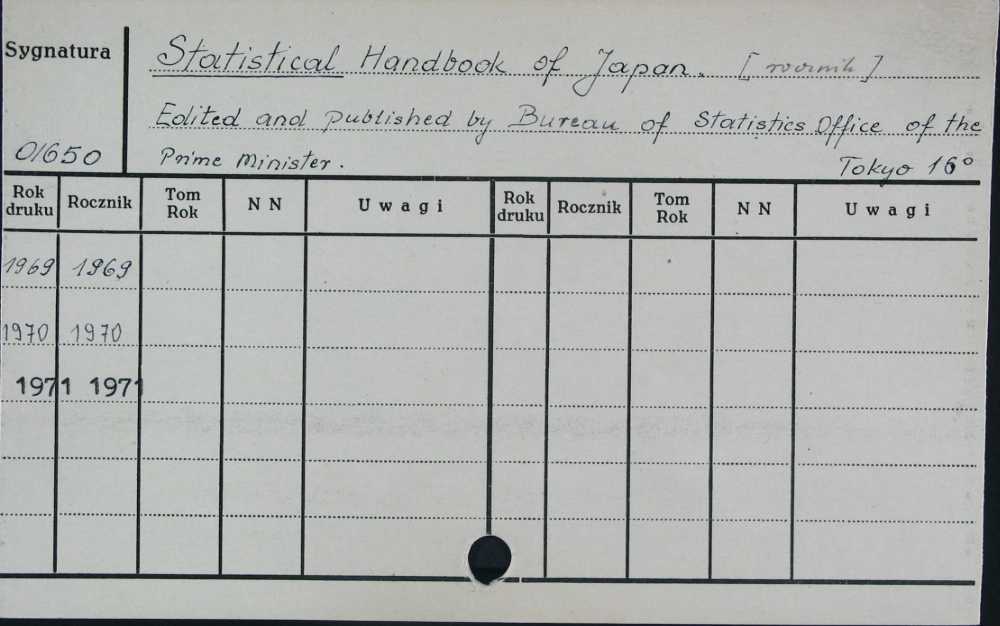 Sygnatura
Statistical Handbook of Japan. [rocznik]
Edited and published by Bureau of Statistics Office of the
01650 Prime Minister. Tokyo 16°
Rok druku Rocznik Tom Rok N N Uwagi Rok druku Rocznik Tom Rok N N Uwagi
1969 1969
1970 1970
1971 1971